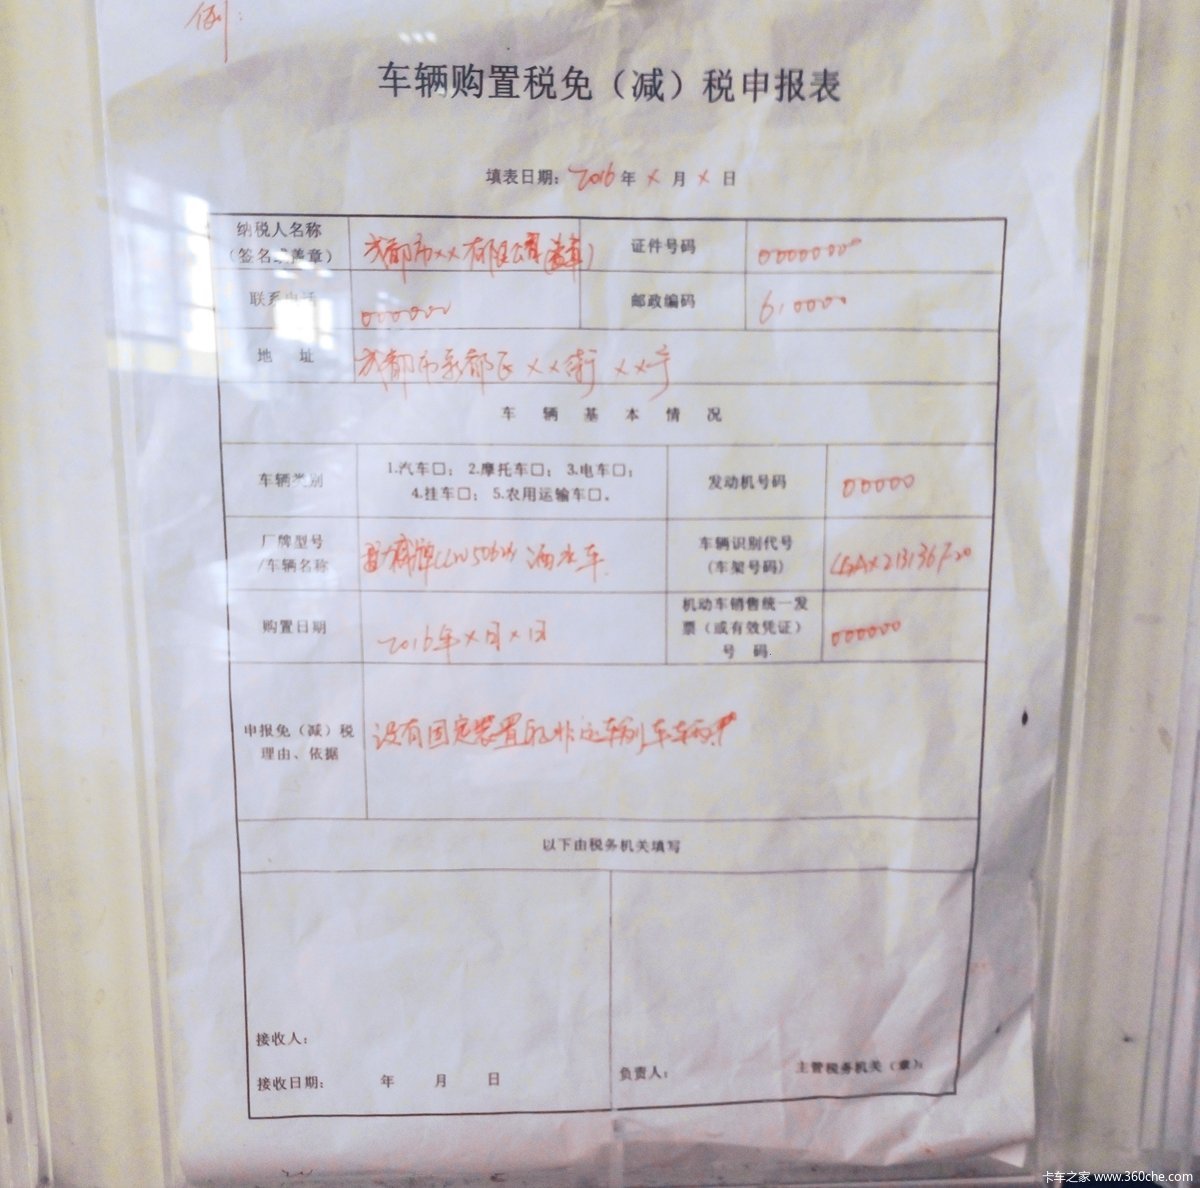 例：
车辆购置税免（减）税申报表
填表日期：2016年 × 月 × 日
纳税人名称
（签名或盖章）
成都市××有限公司(盖章)
证件号码
00000000
联系电话
000000
邮政编码
610000
地 址
成都市新都区××街 ××号
车 辆 基 本 情 况
车辆类别
1.汽车□； 2.摩托车□； 3.电车□；
4.挂车□； 5.农用运输车□。
发动机号码
00000
厂牌型号
/车辆名称
洒水车
车辆识别代号
（车架号码）
购置日期
2016年×月×日
机动车销售统一发
票（或有效凭证）
号 码
000000
申报免（减）税
理由、依据
设有固定装置的非运输车辆
以下由税务机关填写
接收人：
接收日期： 年 月 日
负责人：
主管税务机关（章）：
卡车之家 www.360che.com